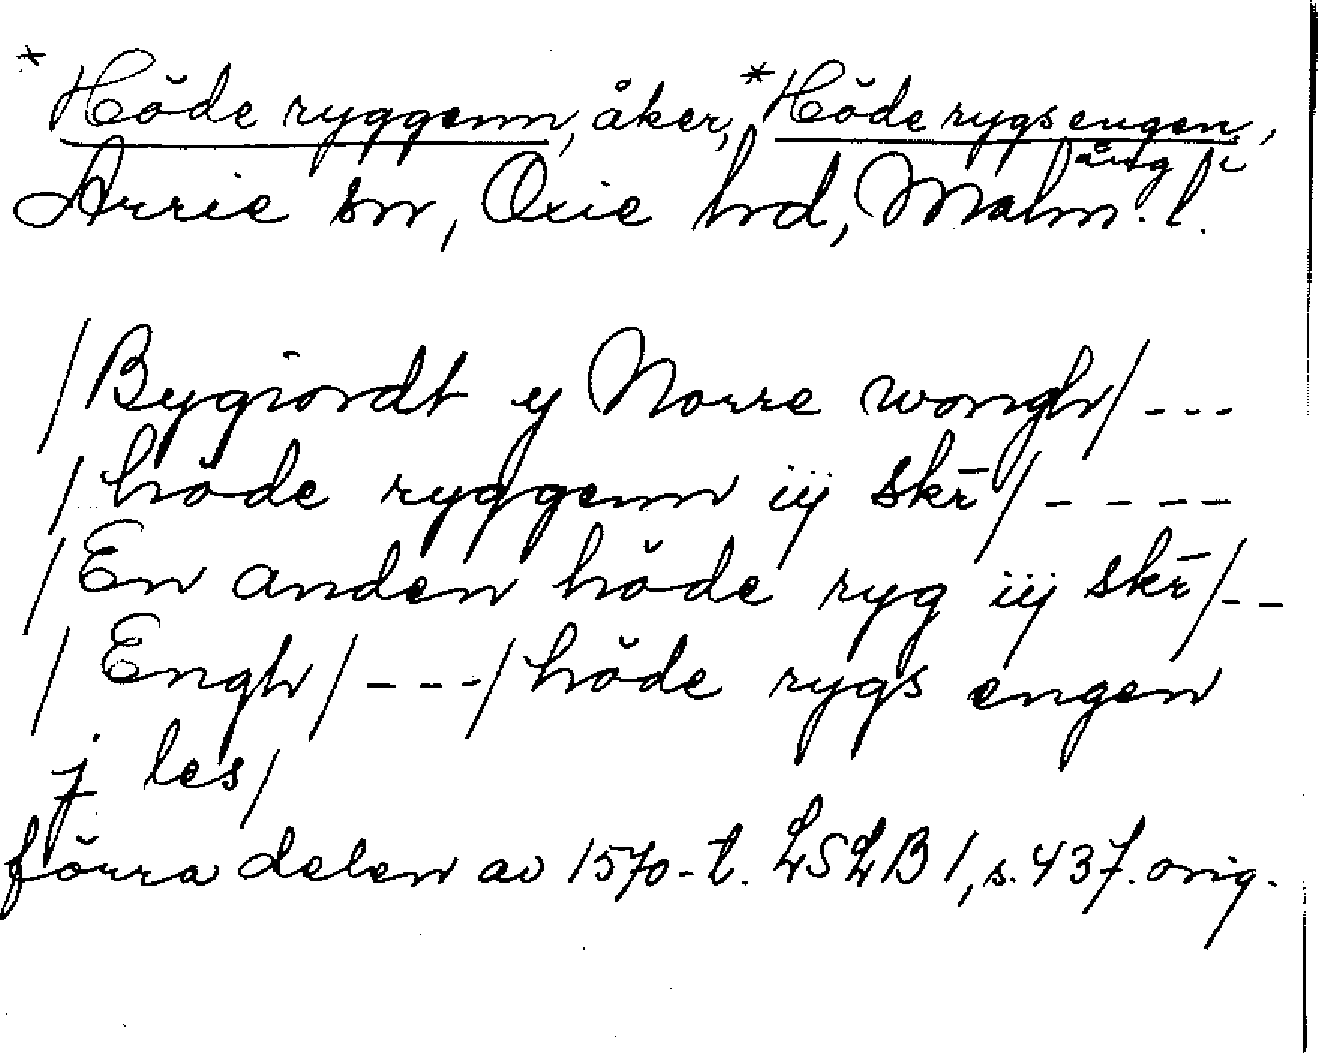 *Höde ryggenn, åker, *Höde rygs engen,
äng i
Arrie sn, Oxie hd, Malm. l.
/Bygiordt y Norre wongh/ ---
/höde ryggenn iij skr̄/ ----
/En anden höde ryg iij skr̄/ --
/Engh/ ---/höde rygs engen
j les/
förra delen av 1570-t. LSLB 1, s. 437. orig.